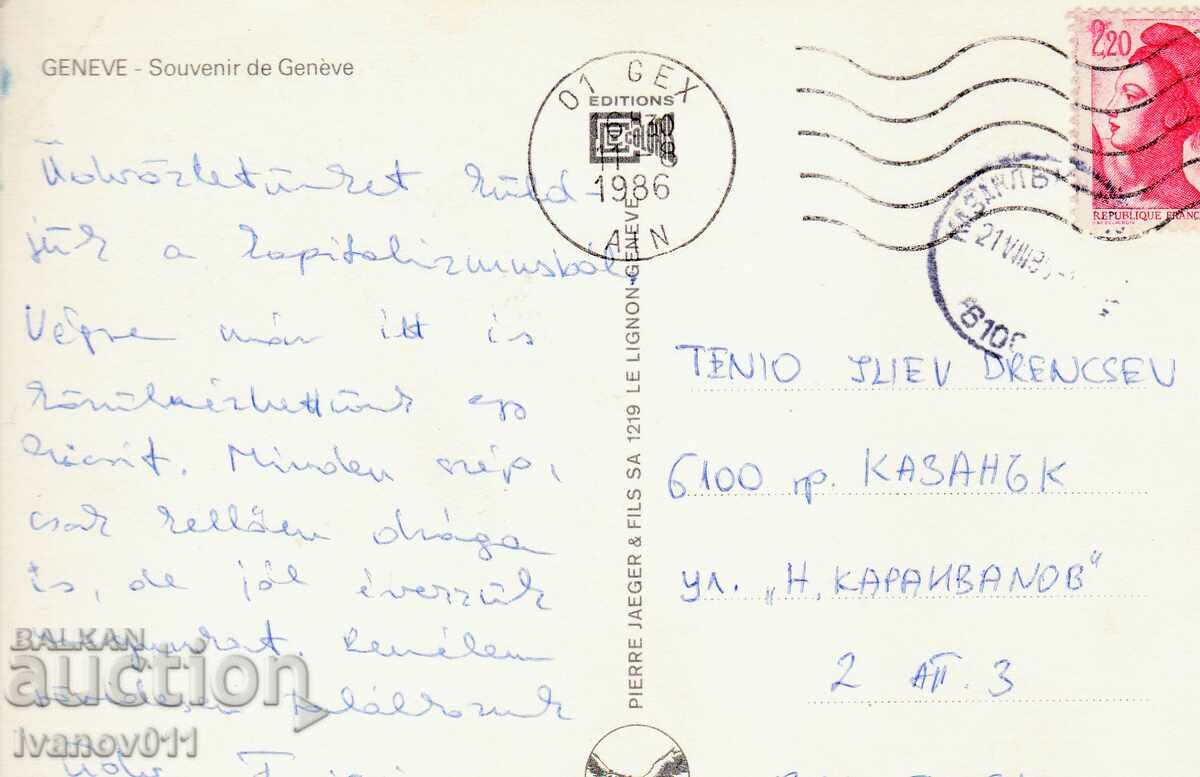 GENEVE - Souvenir de Genève
01 GEX
EDITIONS
1986
AIN
2,20
REPUBLIQUE FRANC
21 VIII 8
6100
Üdvözletünket küld-
jük a kapitalizmusból,
Végre már itt is
körülnézhettünk egy
kicsit. Minden szép,
csak kellően drága
is, de jól érezzük
magunkat. Remélem
találkozunk
PIERRE JAEGER & FILS SA 1219 LE LIGNON-GENEVE
TENIO ILIEV DRENCSEV
6100 гр. КАЗАНЪК
ул. „Н. КАРАИВАНОВ“
2 АП. 3
BALKAN
auction
ivanov011